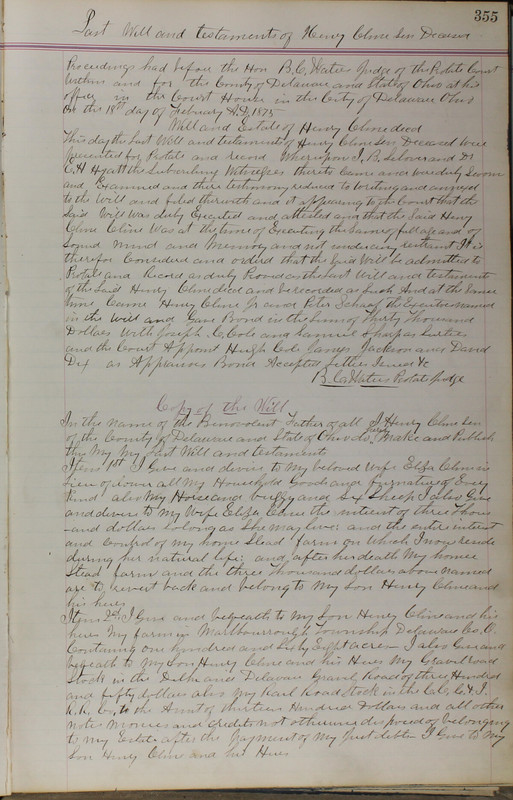 355
Last Will and testaments of Henry Cline Sen Deceased
Proceedings had before the Hon B.C. Waters Judge of the Probate Court
Within and for the County of Delaware and State of Ohio at his
office in the Court House in the City of Delaware Ohio
On the 18th day of February A.D. 1875
Will and Estate of Henry Cline decd
This day the last Will and testaments of Henry Cline Sen Deceased were
presented for Probate and record Whereupon J. B. and Dr
C. H Hyatt the Subscribing Witnesses thereto Came and were duly Sworn
and Examined and there testimony reduced to Writing and annexed
to the Will and filed therewith and it appearing to the Court that the
Said Will was duly Executed and attested and that the Said Henry
Cline Was at the time of Executing the Same of full age and of
Sound Mind and Memory and not under any restraint It is
therefor Considered and ordered that the Said Will be admitted to
Probate and Record as duly Proved as the last Will and testaments
of the Said Henry Cline decd and be recorded as Such And at the Same
time Came Henry Cline Jr and Peter the Executors named
in the Will and Gave Bond in the Sum of Thirty Thousand
Dollars With Joseph C. Cole and Samuel as Sureties
and the Court Appoint Hugh Cole James Jackson and David
Dix as Appraisers Bond Accepted letters Issued &c
B. C. Waters Probate Judge
Copy of the Will
In the name of the Benevolent Father of all I Henry Cline Sen
of the County of Delaware and State of Ohio do Make and Publish
this My Last Will and testaments
Item 1st I Give and devise to My beloved Wife Eliza Cline in
lieu of dower all My Household Goods and furnature of Every
Kind also My Horse and buggy and Six Sheep I also Give
and devise to My Wife Eliza Cline the interest of three Thous
-and dollars So long as She may live: and the enter interest
and Control of my home Stead farm on Which I now reside
during her natural life; and after her death My home
Stead farm and the three thousand dollars above named
are to revert back and belong to My Son Henry Cline and
his heirs
Item 2nd I Give and bequeath to My Son Henry Cline and his
heirs My farm in Marlbourrough Township Delaware Co. O.
Containing one hundred and Sixty Eight acres I also Give and
bequeath to My Son Henry Cline and his Heirs My Gravel road
Stock in the and Delaware Gravel Road of three Hundred
and fifty dollars also My Rail Road Stock in the C.C.C. & I.
R.R. Co. to the Amt of thirteen Hundred Dollars and all other
Notes Monies and Credits not otherwise disposed of belonging
to my Estate after the Payment of My Just debts I Give to My
Son Henry Cline and his Heirs